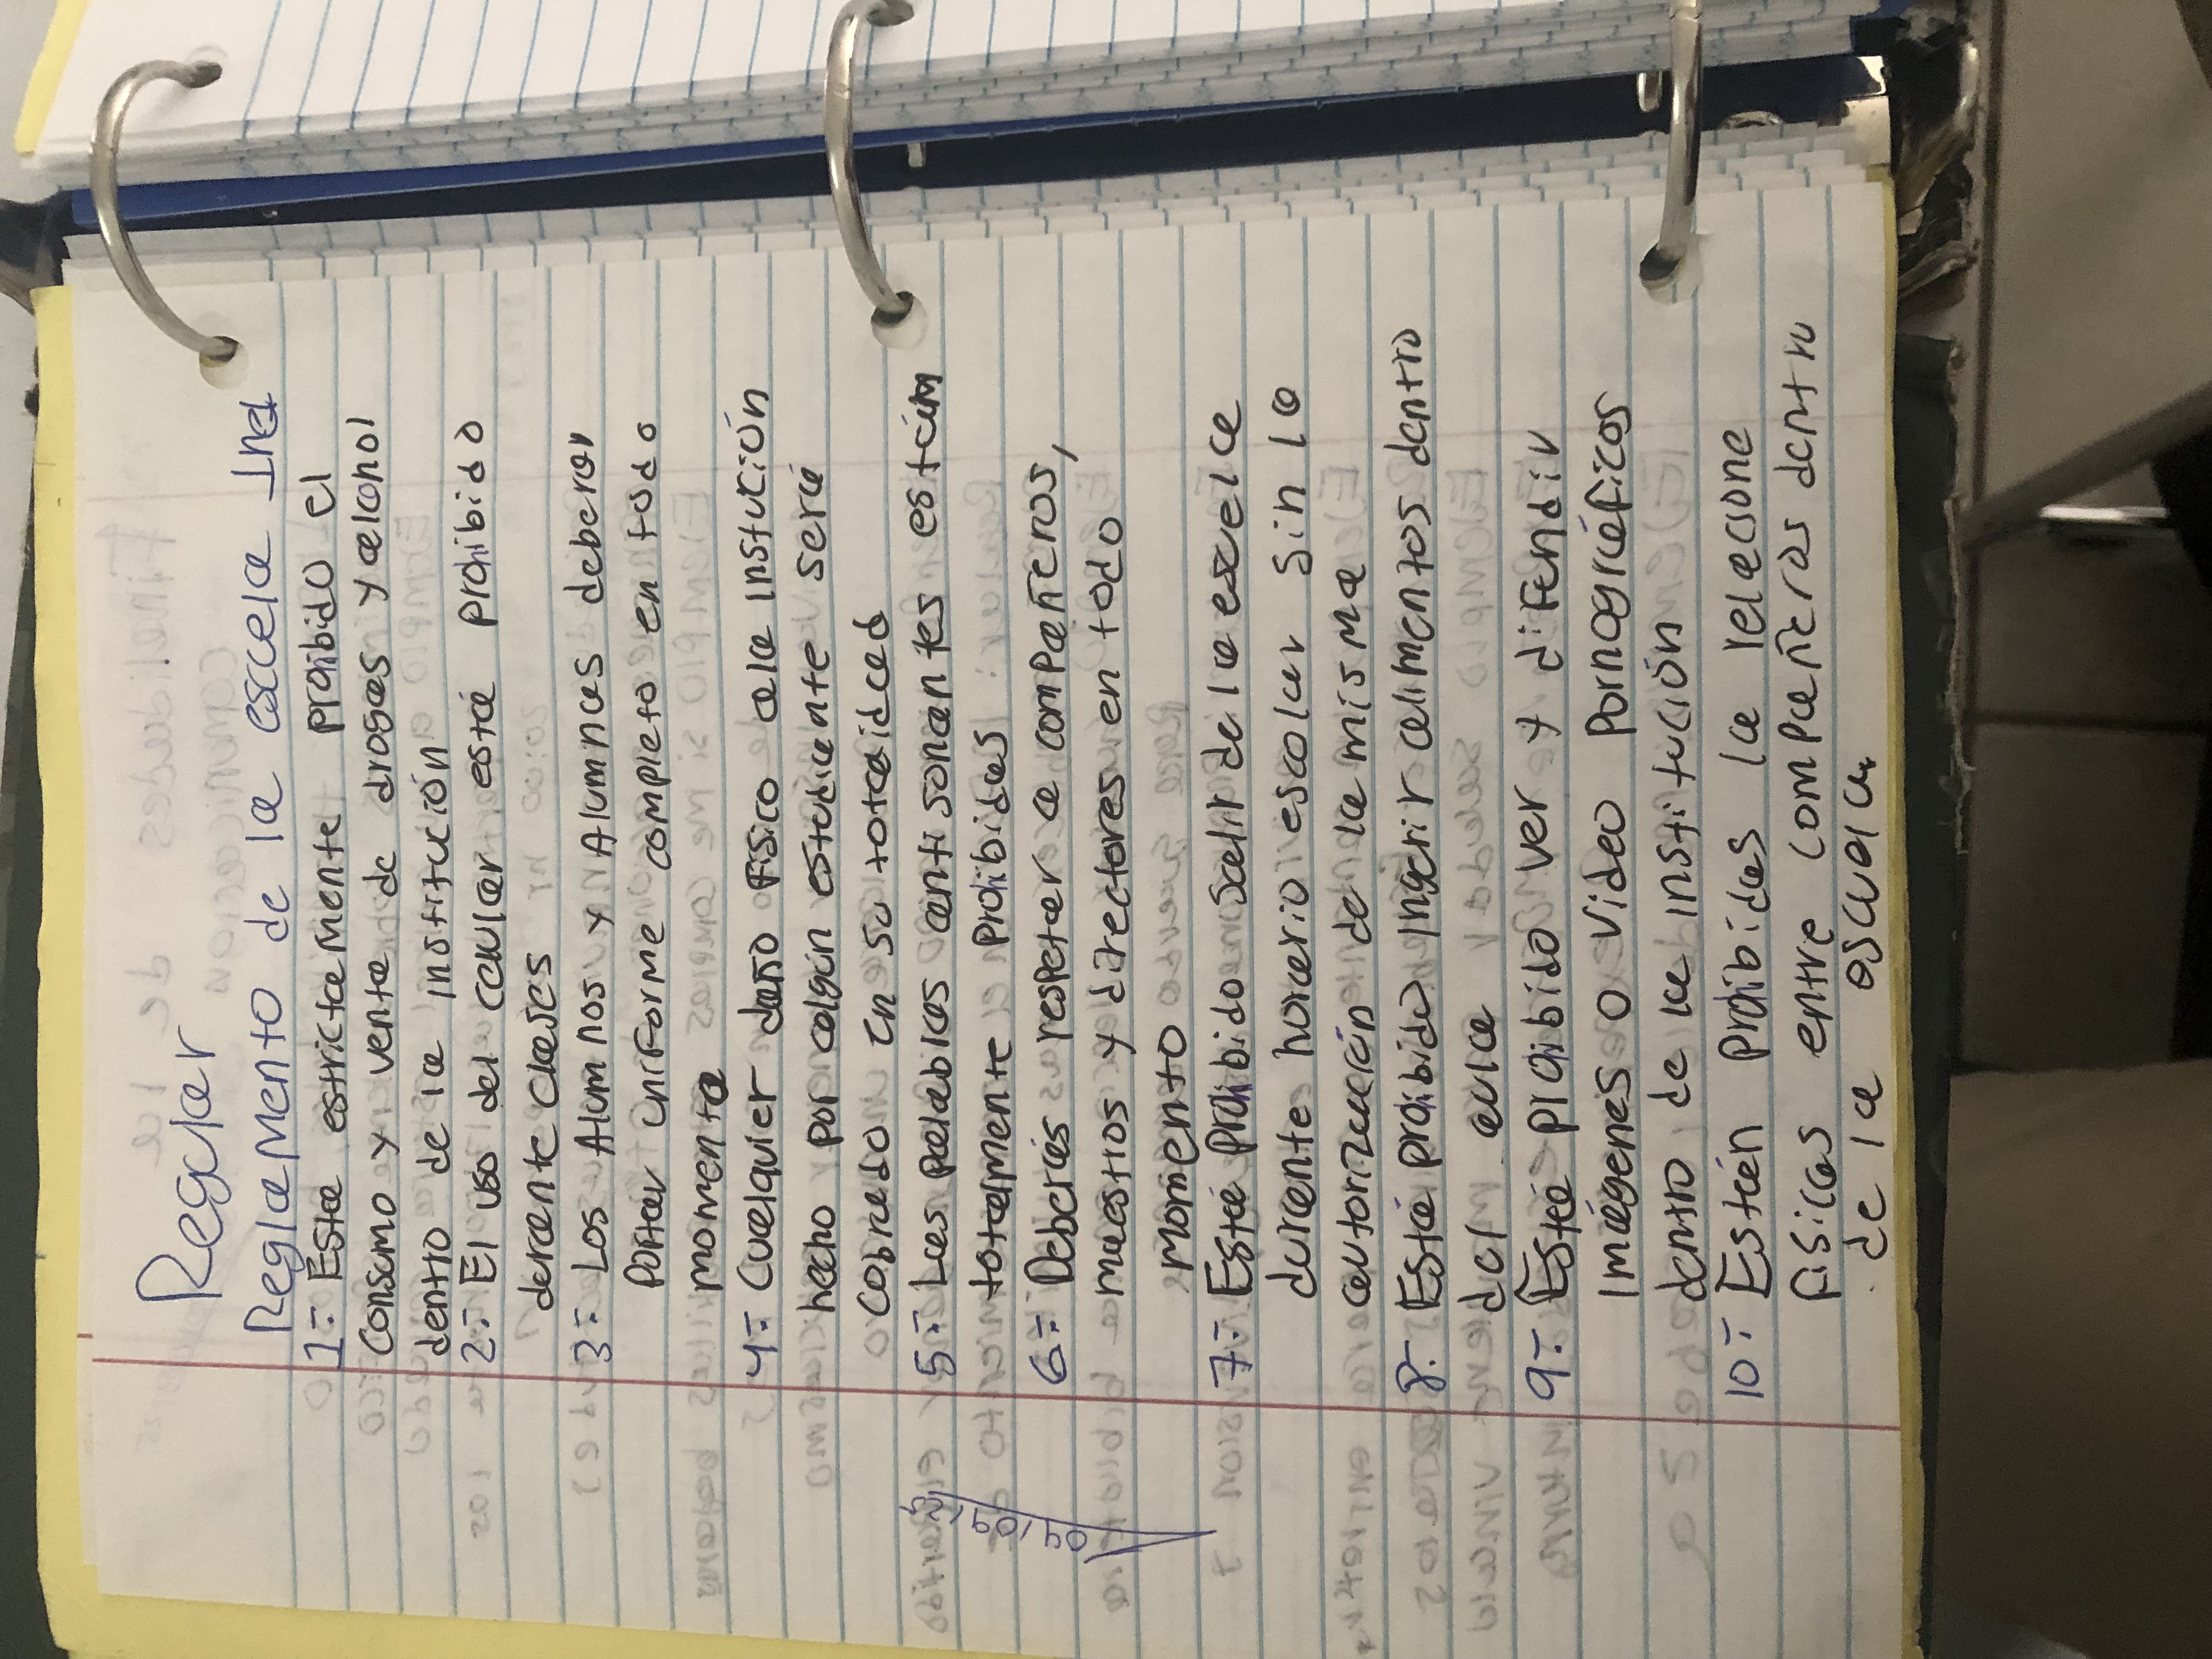 Regular
Reglamento de la escuela
1:- Esta estrictamente prohibido el
consumo y venta de drogas y alcohol
dentro de la institución
2:- El uso del celular está prohibido
durante clases
3:- Los Alumnos y Alumnas deberar
Portar uniforme completo en todo
momento
4:- Cualquier daño Físico a la institución
hecho por algún estudiante será
cobrado en su totalidad
5:- Las palabras anti sonantes están
totalmente prohibidas
6:- Deberás respetar a compañeros,
maestros y directores en todo
momento
7:- Está prohibido salir de la escuela
durante horario escolar sin la
autorización de la misma
8:- Está prohibido Ingerir alimentos dentro
del aula
9:- Está prohibido ver y difendir
Imágenes o video Pornográficos
dentro de la institución
10:- Están prohibidas la relacione
fisicas entre compañeros dentro
de la escuela.